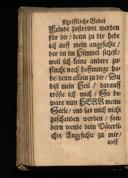 Christliche Gebet
Feinde zustrewet werden
für dir / denn zu dir hebe
ich auff mein angesichte /
der du im Himmel sitzest /
weil ich keine andere zu-
flucht noch hoffnunge ha-
be / denn allein zu dir / Du
bist mein Heil / darauff
tröste ich mich / So be-
ware nun HERR meine
Seele / und las mich nicht
zuschanden werden / son-
dern wende dein Väterli-
ches Angesichte zu mir /
auff